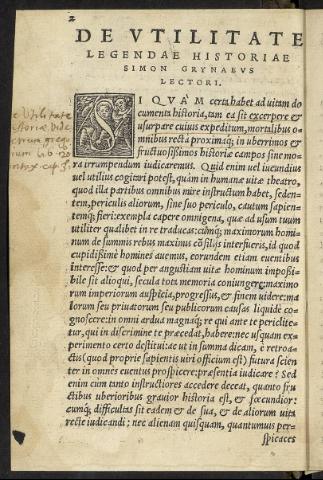 2
DE VTILITATE
LEGENDAE HISTORIAE
SIMON GRYNAEVS
LECTORI.
SIQVAM certa habet ad uitam do
cumenta historia, tam ea sit excerpere &
usurpare cuiuis expeditum, mortalibus o-
mnibus recta proximaq; in uberrimos &
fructuosissimos historiæ campos sine mo-
ra irrumpendum iudicarem. Quid enim uel iucundius
uel utilius cogitari potest, quàm in humanæ uitæ theatro,
quod illa partibus omnibus mire instructum habet, seden-
tem, periculis aliorum, sine suo periculo, cautum sapien-
temq; fieri: exempla capere omnigena, quæ ad usum tuum
utiliter qualibet in re traducas: cumq; maximorum homi-
num de summis rebus maximis consilijs interfueris, id quod
cupidissime homines auemus, eorundem etiam euentibus
interesse: & quod per angustiam uitæ hominum impossi-
bile sit alioqui, secula tota memoria coniungere: maximo
rum imperiorum auspicia, progressus, & finem uidere: ma
lorum seu priuatorum seu publicorum causas liquido co-
gnoscere: in omni ardua magnaq; re qui ante te periclite-
tur, qui in discrimine te præcedat, habere: nec usquam ex-
perimento certo destitui: ac ut in summa dicam, è retroa-
ctis (quod proprie sapientis uiri officium est) futura scien
ter in omnes euentus prospicere: præsentia iudicare? Sed
enim cum tanto instructiores accedere deceat, quanto fru
ctibus uberioribus grauior historia est, & fœcundior:
cumq; difficultas sit eadem & de sua, & de aliorum uita
recte iudicandi; nec alienam quisquam, quantumuis per-
spicaces